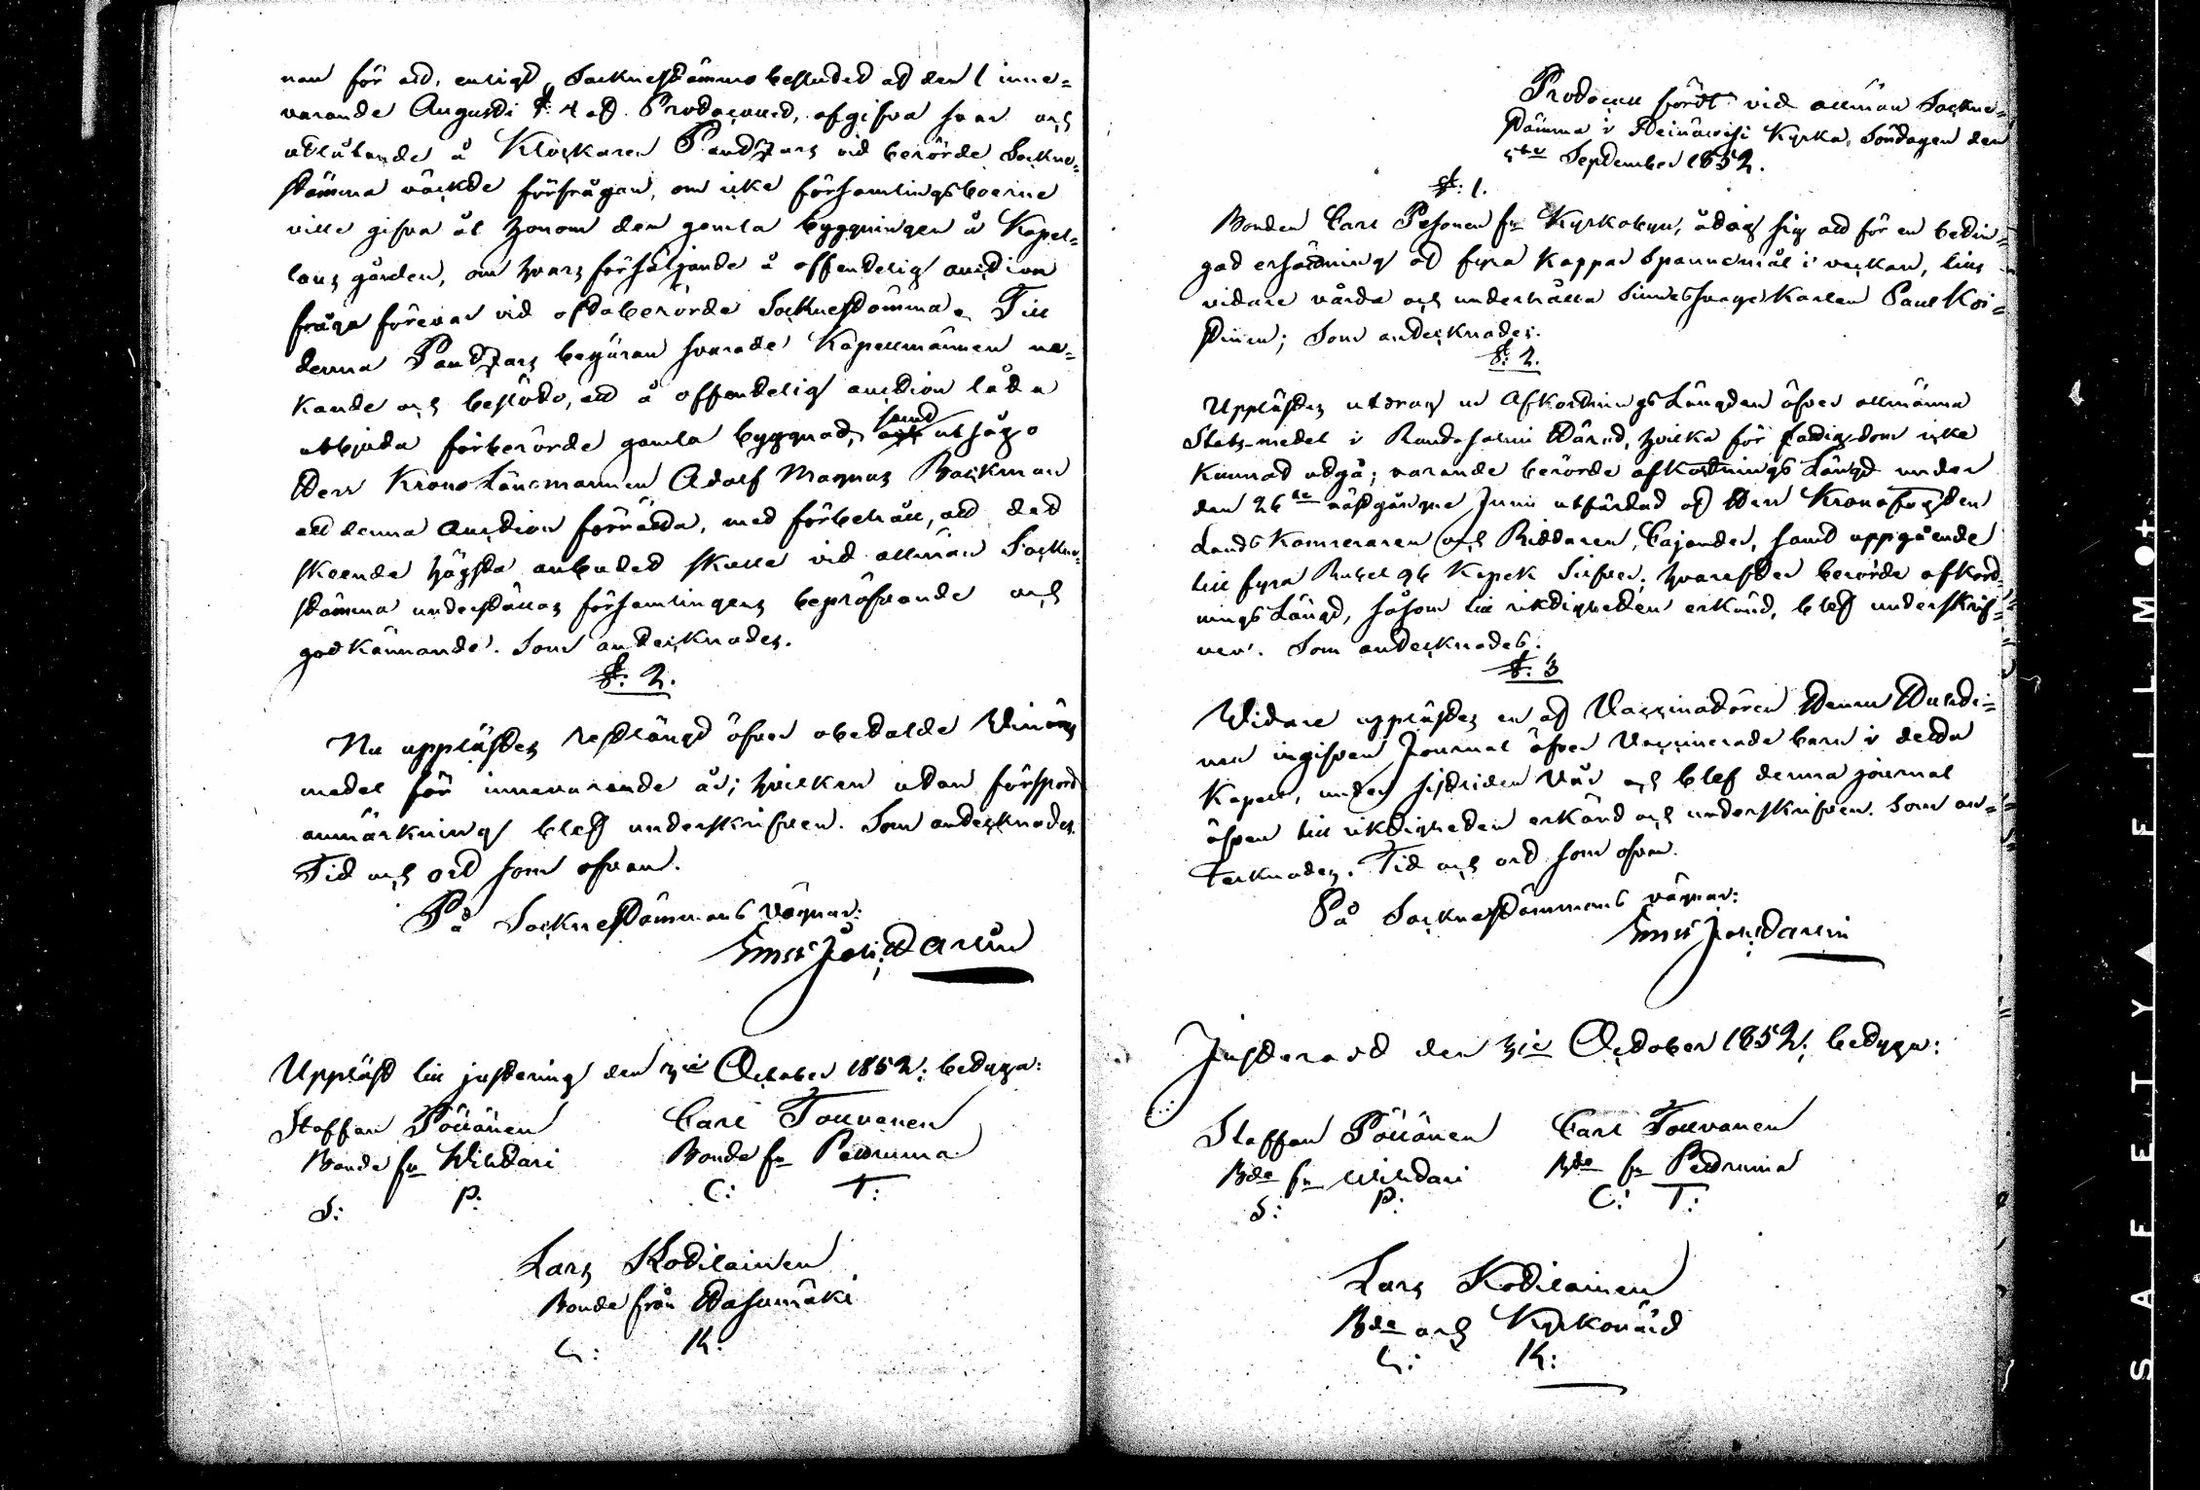 nan för att, enligt Socknestämmo beslutet af den 1 inne=
varande Augusti §: 4 af Protocollet, afgifva svar och
utlåtande å Klockaren Pantzars vid berörde Sockne=
stämma väckte förfrågan, om icke församlingsboerne
ville gifva åt honom den gamla byggningen å Kapel=
lans gården, om hvars försäljande å offentelig auction
fråga förevar vid oftaberörde Sockne stämma. Till
denna Pantzars begäran svarade Kapellmännen ne=
kande och beslöto, att å offentelig auction låta
utbjuda förberörde gamla byggnad, samt utsågo
Herr Krono Länsmannen Adolf Magnus Backman
att denna Auction förrätta, med förbehåll, att det
skeende högsta anbudet skulle vid allmän Sockne=
stämma underställas församlingens bepröfvande och
godkännande. Som antecknades.
§: 2.
Nu upplästes restlängd öfver obetalde
medel för innevarande år; hvilken utan försport
anmärkning blef underskrifven. Som antecknades.
Tid och ort som ofvan.
På Socknestämmans vägnar:
Uppläst till justering den 3je October 1852; betyga:
Staffan Pöllänen Carl Tolvanen
Bonde fn Wihtari Bonde fn Petruma
S: P: C: T:
Lars Kotilainen
Bonde från Hasumäki
L: K:
Protocoll fördt vid allmän Sockne=
stämma i Heinäwesi Kyrka, Söndagen den
5te September 1852.
§: 1.
Bonden Carl Pesonen fn Kyrkobyn, åtog sig att för en beting=
gad ersättning af fyra kappar Spannemål i veckan, tills
vidare vårda och underhålla Sinnessvage Karlen Paul Koi=
stinen; Som antecknades.
§: 2.
Upplästes utdrag ur Afkortnings Längden öfver allmänna
Stats-medel i Randasalmi Härad, hvilka för fattigdom icke
kunnat utgå; varande berörde afkortnings Längd under
den 26te nästgångne Junii utfärdad af Herr Kronofogden
Lands Kamreraren och Riddaren, Cajander, samt uppgående
till fyra Rubel 96 Kopek Silfver; hvarefter berörde afkort=
nings Längd, såsom till riktigheten erkänd, blef underskrif=
ven. Som antecknades.
§: 3
Widare upplästes en af Vaccinatören Henric Hukti=
nen ingifven Journal öfver Vaccinerade barn i detta
Kapell, under sistliden Vår och blef denna journal
äfven till riktigheten erkänd och underskrifven. Som an=
tecknades. Tid och ort som ofvan.
På Socknestämmans vägnar:
Justeradt den 3je October 1852; betyga:
Staffan Pöllänen Carl Tolvanen
Bde fn Wihtari Bde fn Petruma
S: P: C: T:
Lars Kotilainen
Bde och Kyrkovärd
L: K:
SAFETY▲FILM